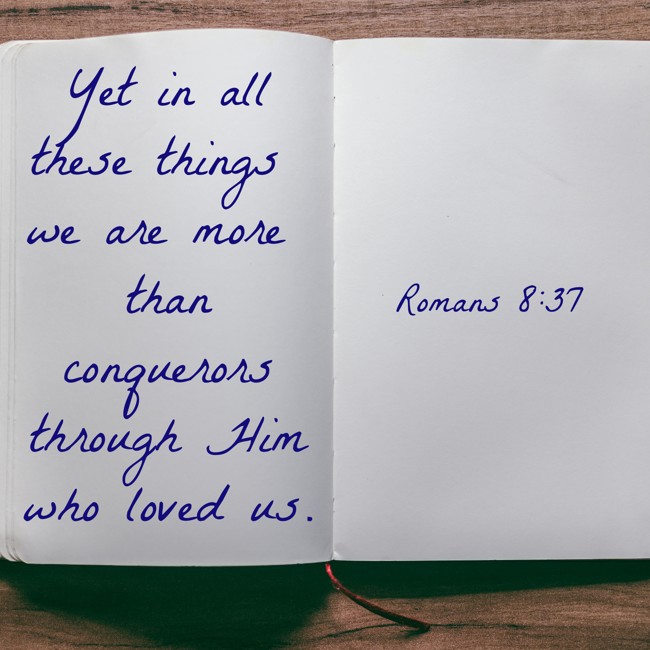 Yet in all
these things
we are more
than
conquerors
through Him
who loved us.
Romans 8:37